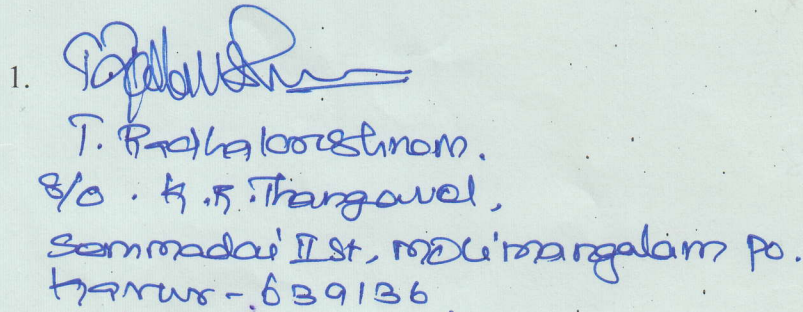 1.
T. Radhakrishnan.
S/o. K.K. Thangavel,
Semmadai II St, molimangalam po.
Karur - 639136